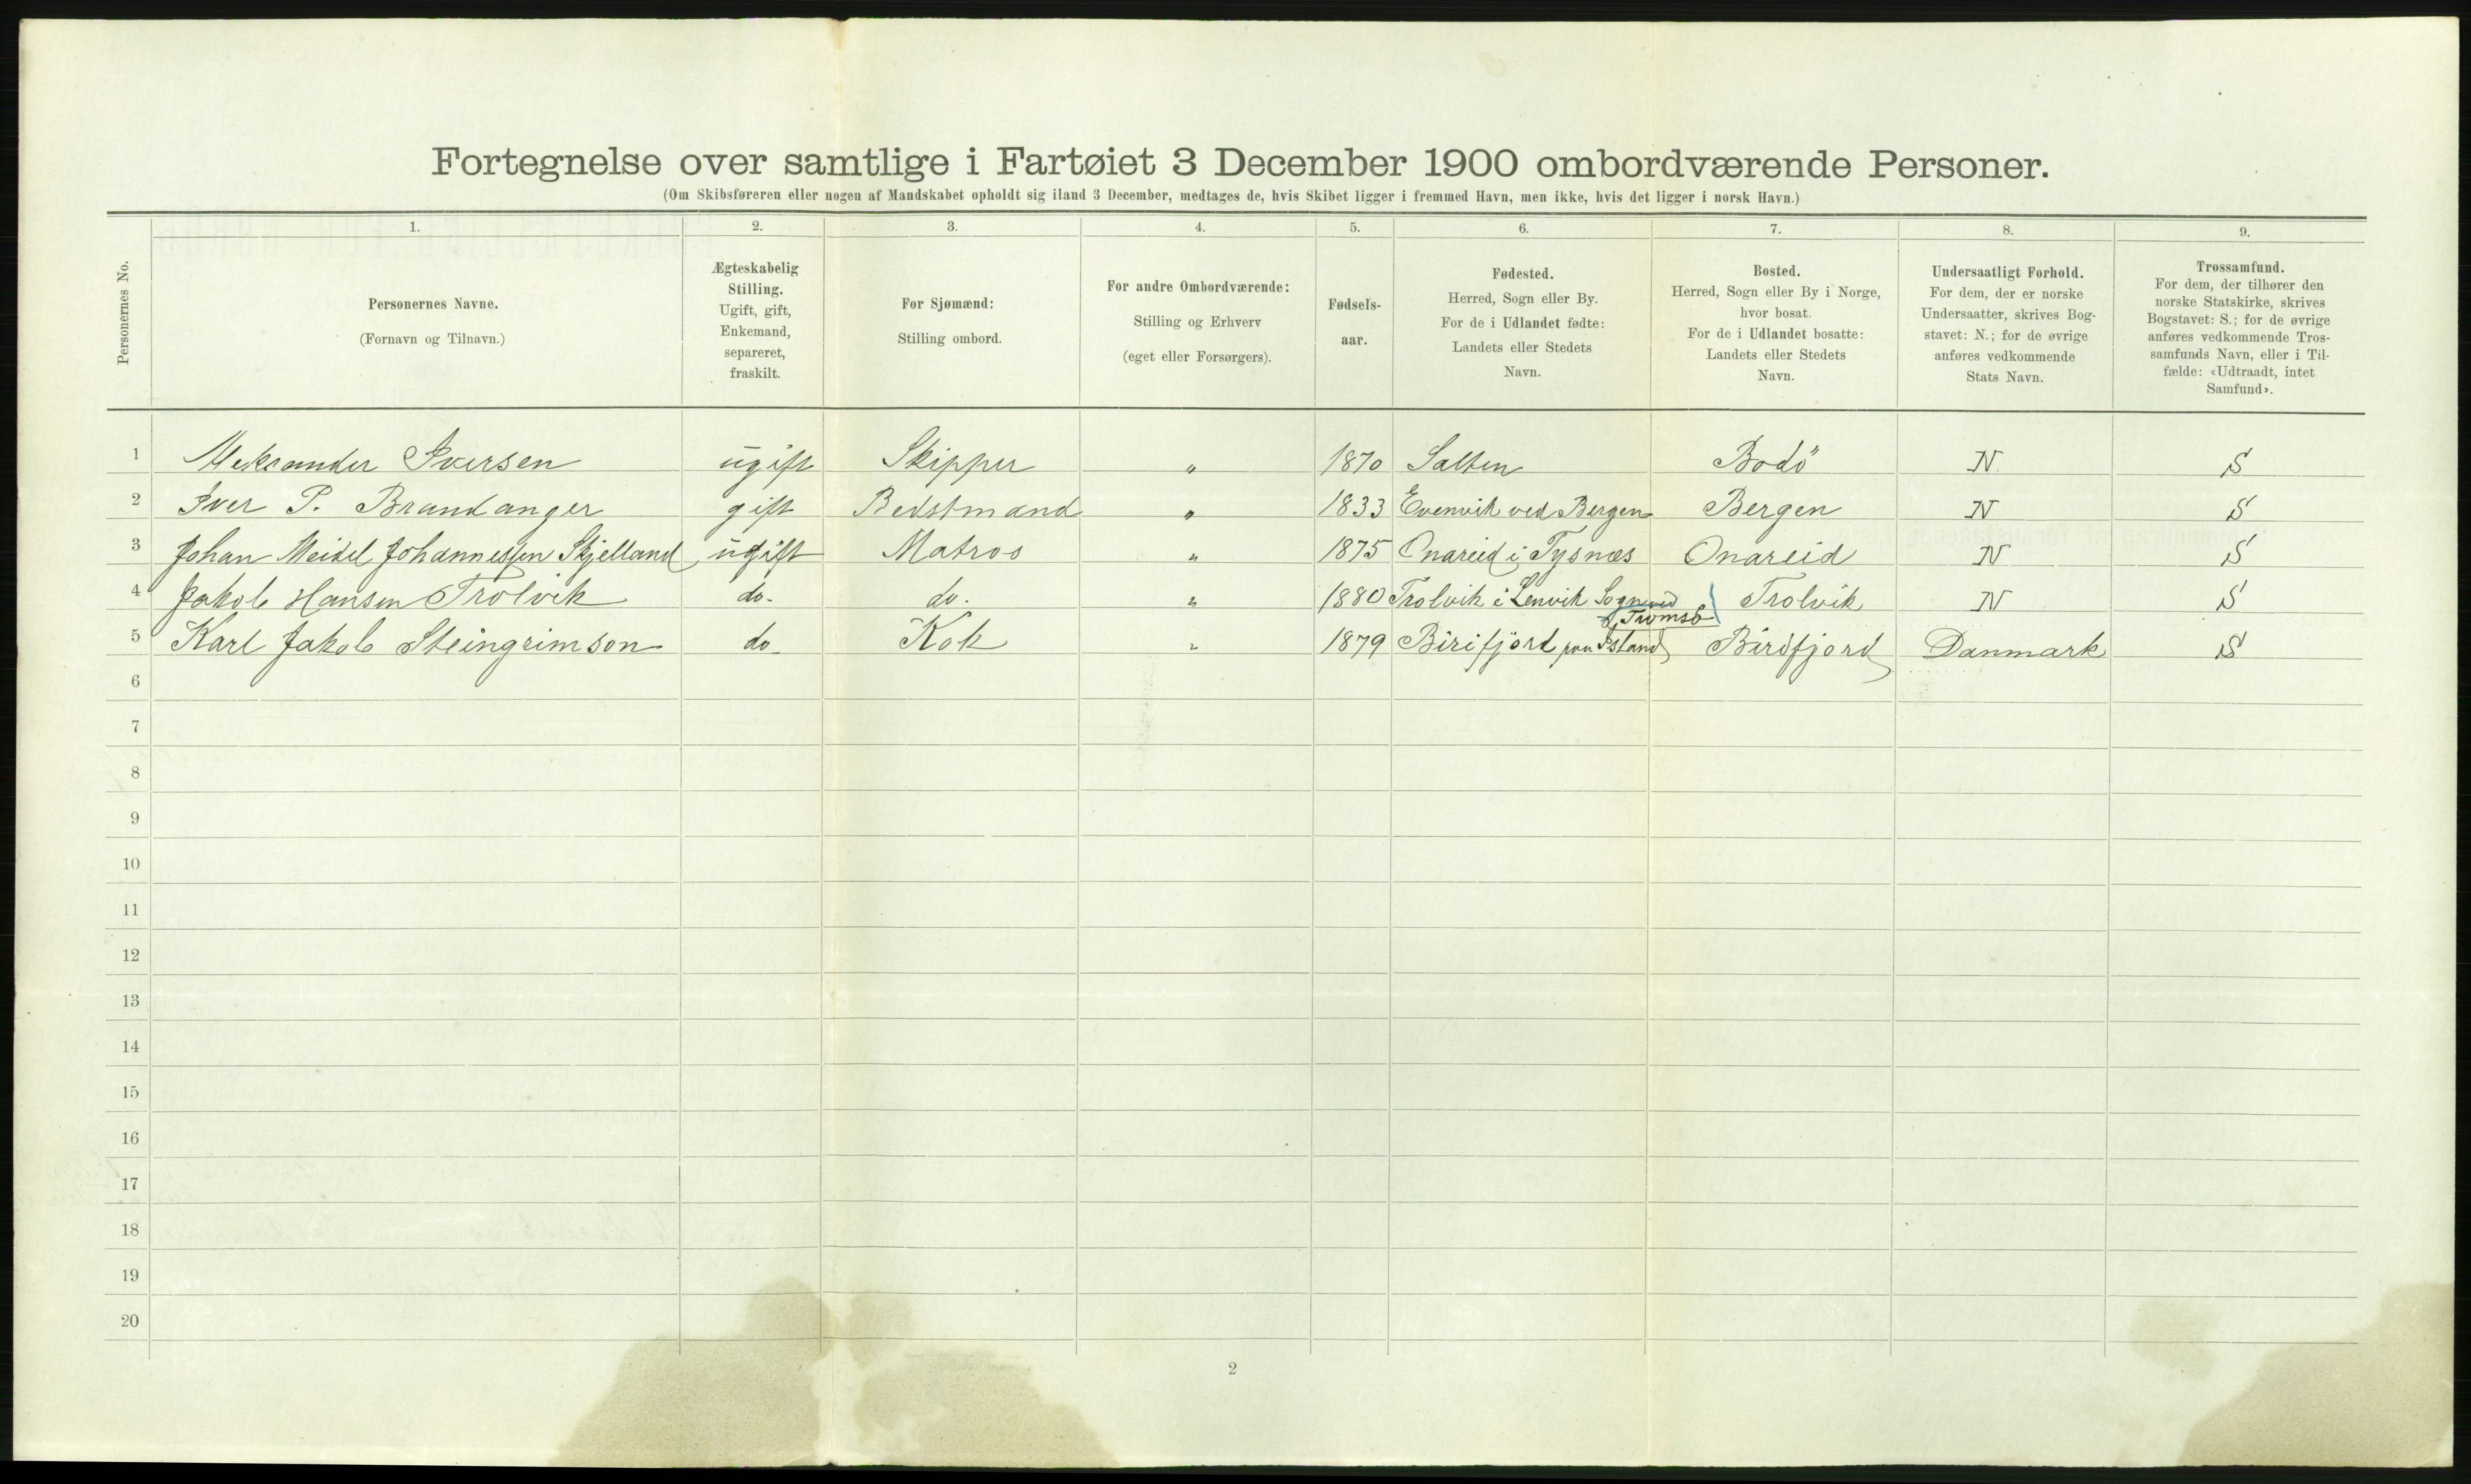 Fortegnelse over samtlige i Fartøiet 3 December 1900 ombordværende Personer.
(Om Skibsføreren eller nogen af Mandskabet opholdt sig iland 3 December, medtages de, hvis Skibet ligger i fremmed Havn, men ikke, hvis det ligger i norsk Havn.)
Personernes No.
1.
Personernes Navne.
(Fornavn og Tilnavn.)
2.
Ægteskabelig
Stilling.
Ugift, gift,
Enkemand,
separeret,
fraskilt.
3.
For Sjømænd:
Stilling ombord.
4.
For andre Ombordværende:
Stilling og Erhverv
(eget eller Forsørgers).
5.
Fødsels-
aar.
6.
Fødested.
Herred, Sogn eller By.
For de i Udlandet fødte:
Landets eller Stedets
Navn.
7.
Bosted.
Herred, Sogn eller By i Norge,
hvor bosat.
For de i Udlandet bosatte:
Landets eller Stedets
Navn.
8.
Undersaatligt Forhold.
For dem, der er norske
Undersaatter, skrives Bog-
stavet: N.; for de øvrige
anføres vedkommende
Stats Navn.
9.
Trossamfund.
For dem, der tilhører den
norske Statskirke, skrives
Bogstavet: S.; for de øvrige
anføres vedkommende Tros-
samfunds Navn, eller i Til-
fælde: «Udtraadt, intet
Samfund».
1 Aleksander Iversen ugift Skipper " 1870 Salten Bodö N S
2 Iver P. Brandanger gift Bedstmand " 1833 Evenvik ved Bergen Bergen N S
3 Johan Meidel Johannessen Skjelland ugift Matros " 1875 Onareid i Tysnæs Onareid N S
4 Jakob Hansen Trolvik do. do. " 1880 Trolvik i Lenvik Sogn ved Tromsö Trolvik N S
5 Karl Jakob Steingrimson do. Kok " 1879 Birifjord paa Island Birdfjord Danmark S
6
7
8
9
10
11
12
13
14
15
16
17
18
19
20
2